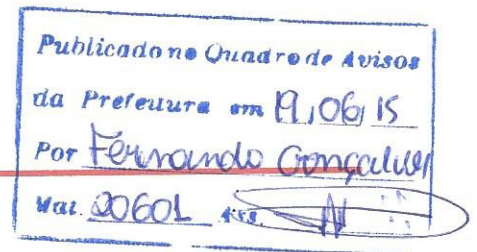 Publicado no Quadro de Avisos
da Prefeitura em 19,06,15
Por Fernando Gonçalves
Mat. 20601 Ass.